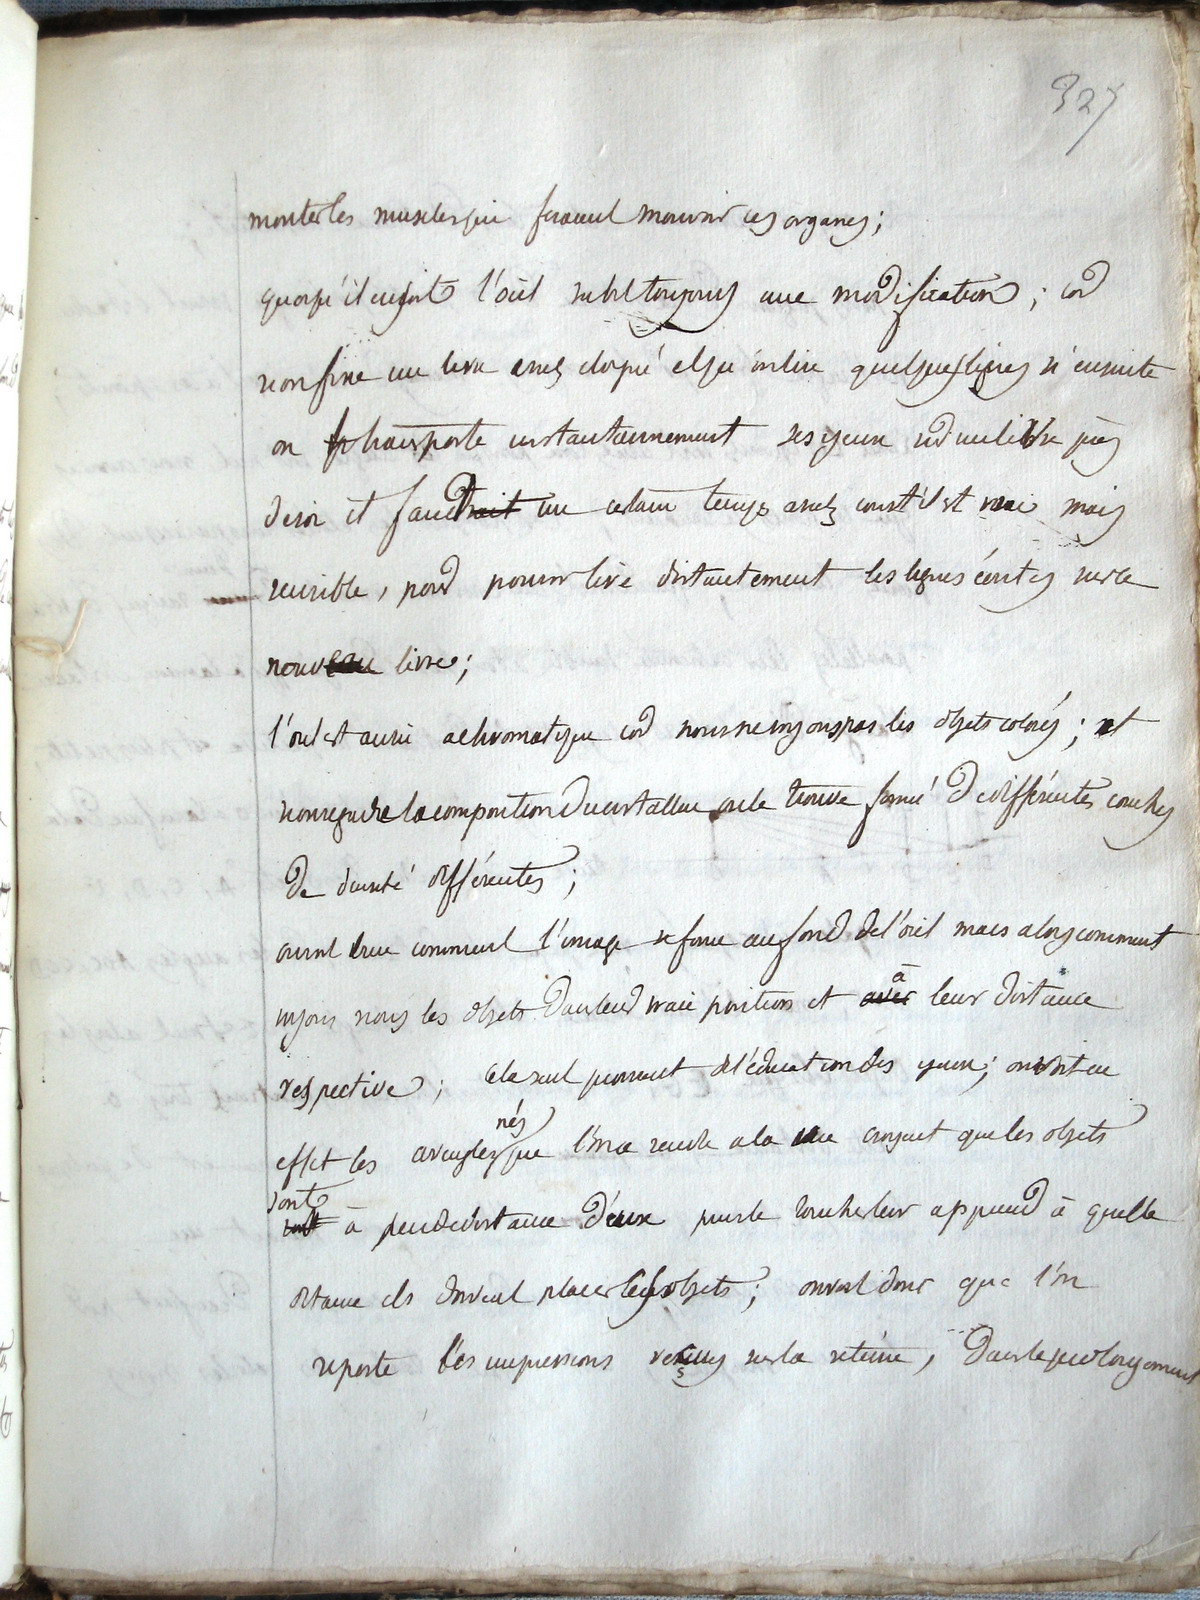 327
montrer les muscles qui feraient mouvoir ces organes;
quoiqu'il en soit l'oeil subit toujours une modification; car
si on fixe un livre assez eloigné et qu'on lise quelques lignes si ensuite
on transporte instantannement ses yeux sur un livre près
de soi il faut un certain temps assez court il est vrai mais
sensible, pour pouvoir lire distinctement les lignes écrites sur le
nouveau livre;
l'oeil est aussi achromatique car nous ne voyons pas les objets colorés; et
si on regarde la composition du cristallin on le trouve formé de différentes couches
de densité différentes;
on voit bien comment l'image se forme au fond de l'oeil mais alors comment
voyons nous les objets dans leur vraie position et à leur distance
respective; cela seul provient de l'éducation des yeux; on voit en
effet les aveugles nés que l'on a rendu a la vue croyent que les objets
sont à peu de distance d'eux puis le toucher leur apprend à quelle
distance ils doivent placer les objets; on voit donc que l'on
reporte les impressions reçues sur la retine, dans le prolongement